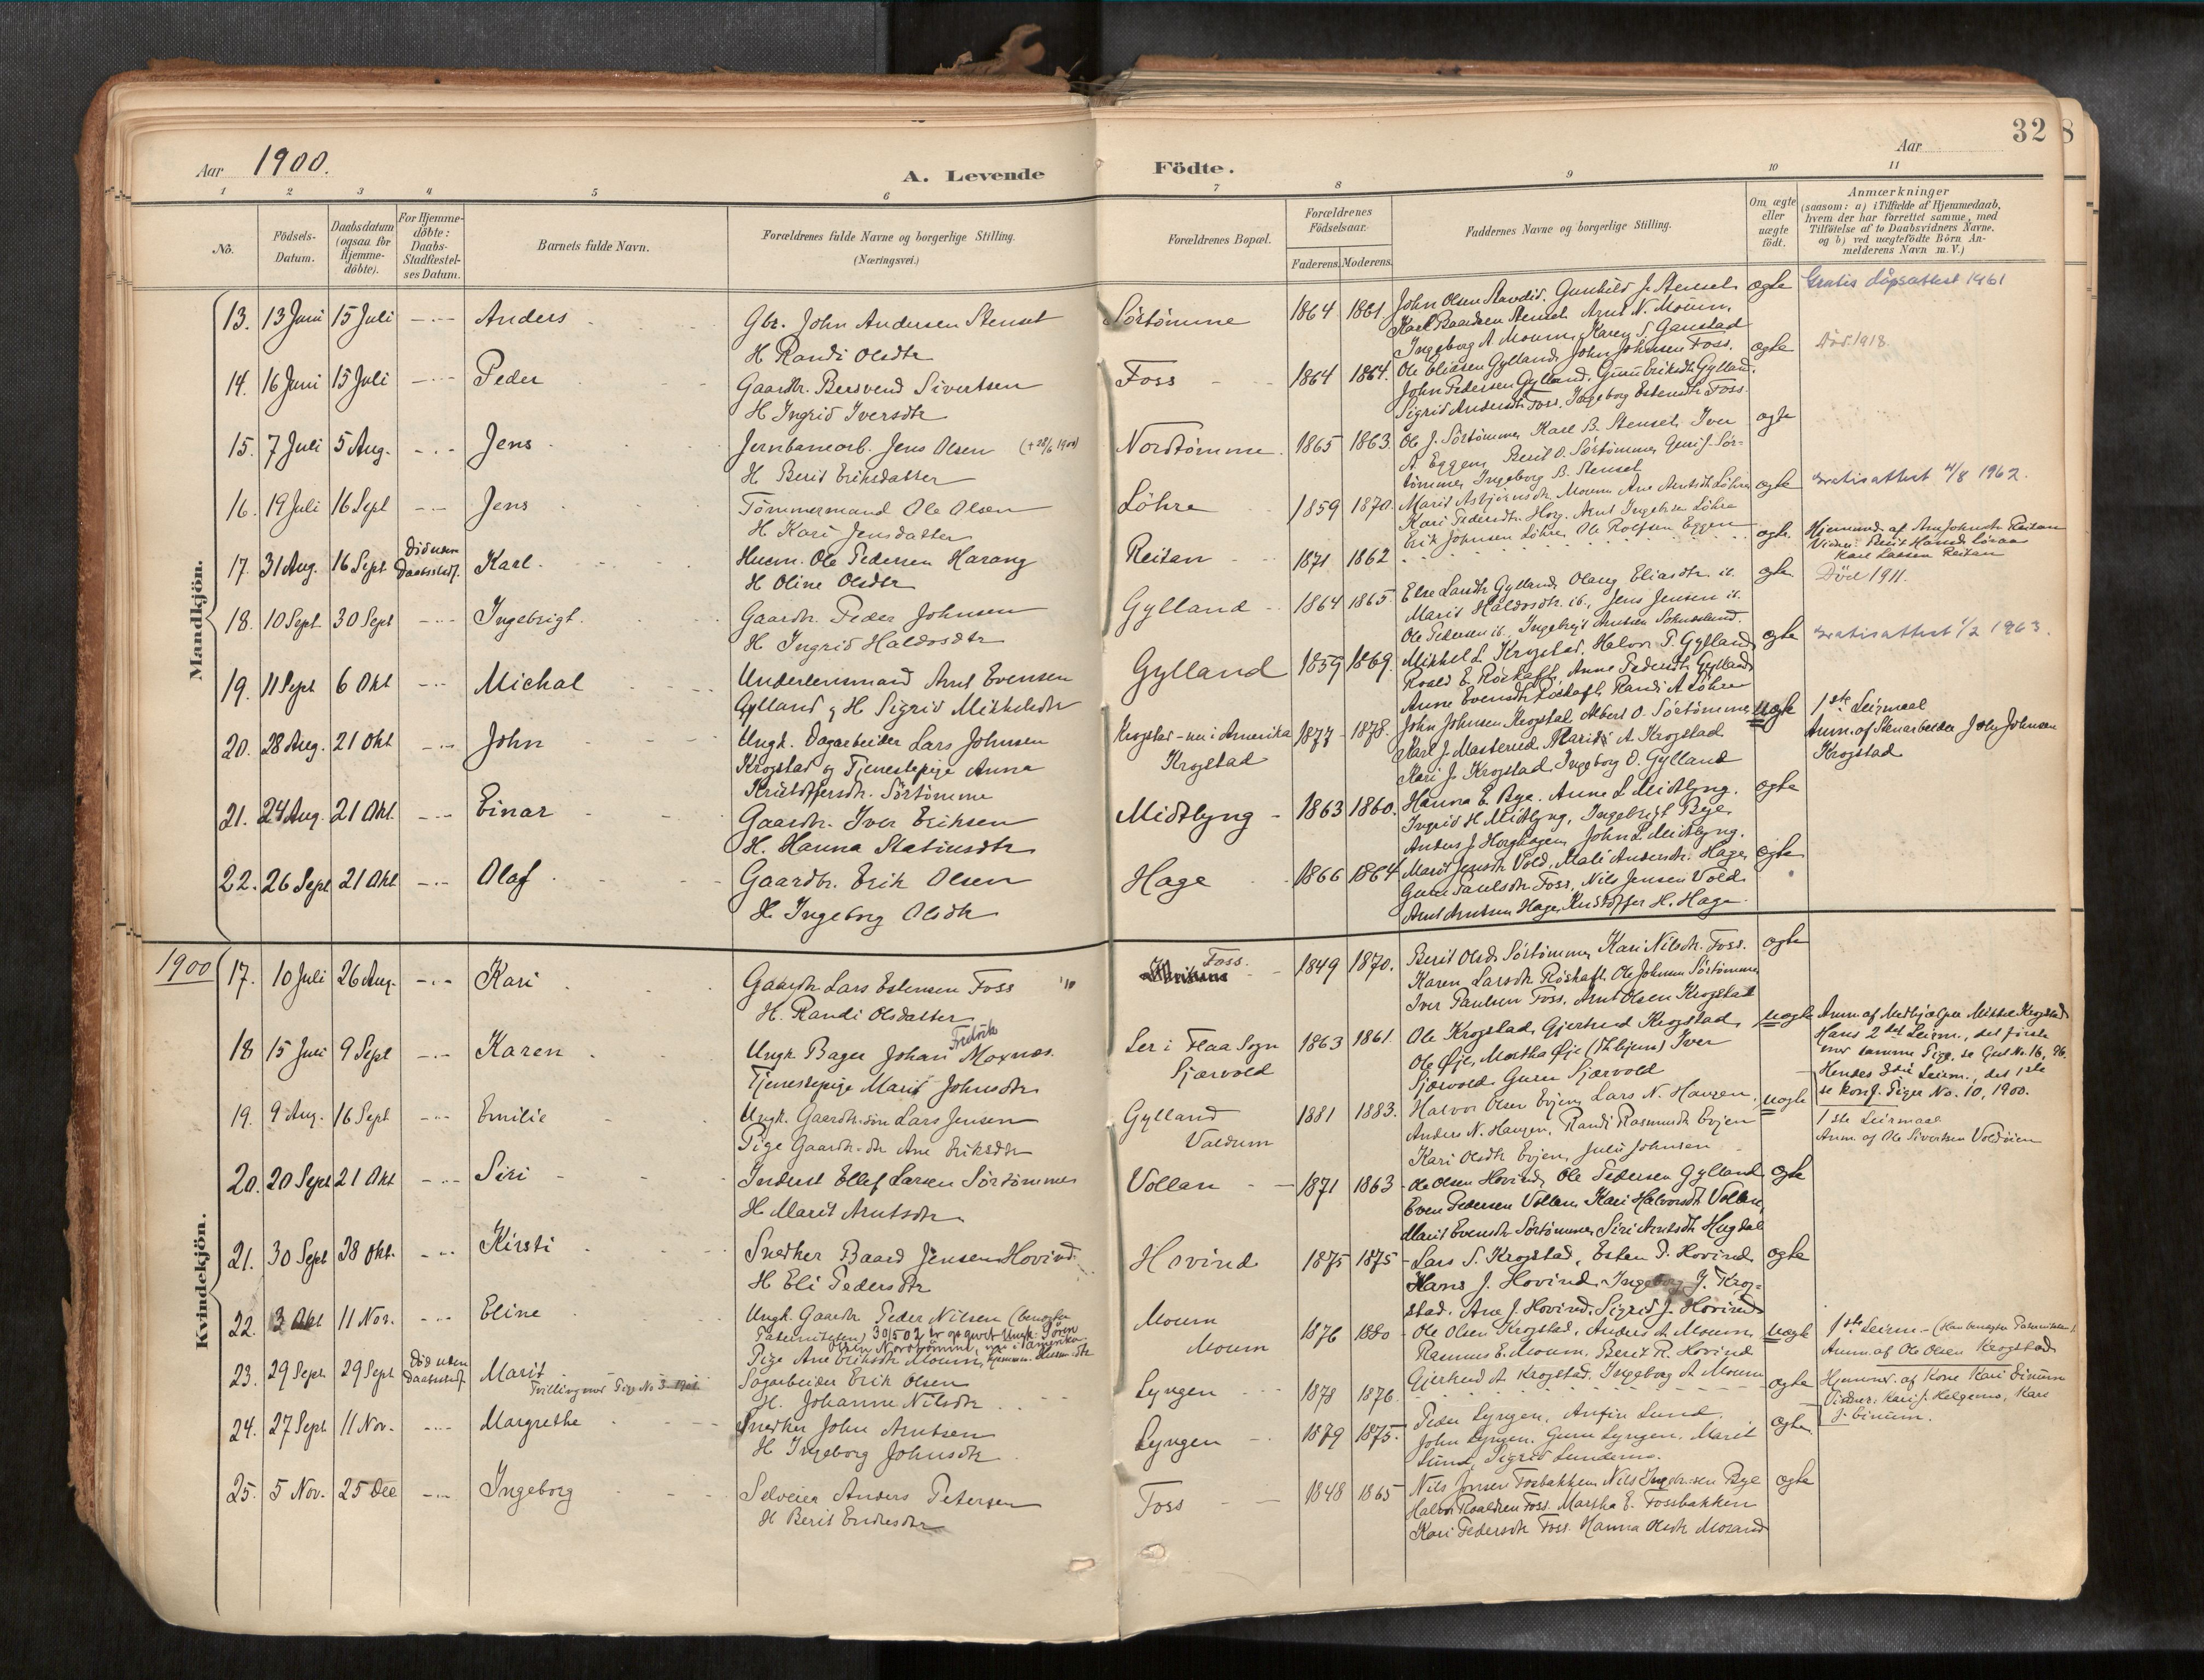 32
8
Aar 1900.
A. Levende
Födte.
Aar
1 2 3 4 5 6 7 8 9 10 11
No.
Födsels-Datum.
Daabsdatum (ogsaa for Hjemme-döbte).
For Hjemme-döbte: Daabs-Stadfæstel-ses Datum.
Barnets fulde Navn.
Forældrenes fulde Navne og borgerlige Stilling.
(Næringsvei.)
Forældrenes Bopæl.
Forældrenes Födselsaar.
Faderens. Moderens.
Faddernes Navne og borgerlige Stilling.
Om ægte eller uægte födt.
Anmærkninger
(saasom: a) i Tilfælde af Hjemmedaab,
hvem der har forrettet samme, med
Tilföielse af to Daabsvidners Navne.
og b) ved uægtefödte Börn An-
melderens Navn m.V.)
Mandkjön.
13. 13 Juni 15 Juli Anders
Gbr. John Andersen Stenset
H. Randi Olsdtr
Sörtömme 1864 1861
John Olsen Gunhild J. Stenset
Karl Baardsen Stenset Arnt N. Moum,
Ingeborg A Moum, Karen S. Ganstad
ægte
Gratis dåpsattest 1961
14. 16 Juni 15 Juli Peder
Gaardbr. Bersvend Sivertsen
H Ingrid Iversdtr
Foss 1864 1864.
Ole Eliasen Gylland, John Johnsen Foss.
John Pedersen Gylland, Guru Eriksdtr Gylland.
Sigrid Andersdtr Foss, Ingeborg Estensdtr Foss
ægte
Död 1918.
15. 7 Juli 5 Aug. Jens
Jernbanearb. Jens Olsen (+28/6 1900)
H Berit Eriksdatter
Nordtömme 1865 1863.
Ole J. Sörtömme, Karl B. Stenset, Iver
A. Eggen, Berit O. Sörtömme, Guri J. Sör-
tömme, Ingeborg B. Stenset
ægte
16. 19 Juli 16 Sept Jens
Tömmermand Ole Olsen
H. Kari Jensdatter
Löhre 1859 1870.
Marit Asbjörnsdtr Moum Ane Arntsdtr Löhre
Kari Pedersdtr Horg, Arnt Ingebr.sen Löhre
Erik Johnsen Löhre, Ole Rolfsen Eggen
ægte
Gratisattest 4/8 1962.
17. 31 Aug. 16 Sept Död uden Daabsstadf. Karl
Husm. Ole Pedersen Harang
H Oline Olsdtr
Reitan 1871 1862
ægte
Hjemmed. af Ane Johnsdtr Reitan
Karl Larsen Reitan
18. 10 Sept 30 Sept Ingebrigt
Gaardbr. Peder Johnsen
H Ingrid Haldosdtr
Gylland 1864 1865.
Else Larsdtr Gylland, Olaug Eliasdtr ib.
Marit Haldosdtr ib., Jens Jensen ib.
Ole Pedersen ib., Ingebrigt
ægte
Död 1911.
19. 11 Sept 6 Okt Michal
Underlensmand Arnt Evensen
Gylland og H Sigrid Mikkelsdtr
Gylland 1859 1869.
Mikkel L. Krogstad, Halvor P. Gylland,
Roald E. Röskaft, Anne Pedersdtr Gylland
Anne Evensdtr Röskaft, Randi A Löhre
ægte
Gratisattest 1/2 1963.
20. 28 Aug. 21 Okt John
Ungk. Dagarbeider Lars Johnsen
Krogstad og Tjenestepige Anna
Kristoffersdtr. Sörtömme
Krogstad - nu i Amerika
Krogstad
1877 1878.
John Johnsen Krogstad, Albert O. Sörtömme
Karl J. Mosterud Marit A. Krogstad
Kari J. Krogstad, Ingeborg O. Gylland
uægte
1ste Leiermaal
Anm. af Stenarbeider John Johnsen
Krogstad
21. 24 Aug. 21 Okt. Einar
Gaardbr. Iver Eriksen
H. Hanna Statinsdtr
Midtlyng 1863 1860.
Hanna E. Bye. Anne L. Midtlyng.
Ingrid H. Midtlyng, Ingebrigt Bye
Anders J. Horghagen, John L. Midtlyng.
ægte
22. 26 Sept 21 Okt Olaf
Gaardbr. Erik Olsen
H. Ingeborg Olsdtr
Hage 1866 1864
Marit Jensdtr Vold, Mali Andersdtr. Hage,
Guru Paulsdtr Foss, Nils Jensen Vold
Arnt Arntsen Hage, Kristoffer H. Hage
ægte
Kvindekjön.
1900
17. 10 Juli 26 Aug. Kari
Gaardbr Lars Estensen Foss
H. Randi Olsdatter
Foss. 1849 1870.
Berit Olsd. Sörtömme, Kari Nilsdtr. Foss.
Karen Larsdtr Röskaft. Ole Johnsen Sörtömme
Iver Paulsen Foss, Arnt Olsen Krogstad
ægte
18 15 Juli 9 Sept Karen
Ungk. Bager Johan Fredrik Moxnæs.
Tjenestepige Marit Johnsdtr
Ler i Flaa Sogn
Sjærvold
1863 1861
Ole Krogstad, Gjertrud Krogstad,
Ole Øje, Martha Øje Iver
Sjærvold Guru Sjærvold
uægte
Anm. af Medhjælper Mikkel Krogstad
Hans 2det Leierm., det förste
med samme Pige, se Gut No. 16, 96.
Hendes 3die Leierm., det 1ste
se konf. Piger No. 10, 1900.
19. 9 Aug. 16 Sept Emilie
Ungk. Gaardbr.sön Lars Jensen
Pige Gaardbr. dtr Ane Eriksdtr
Gylland
Valdum
1881 1883.
Halvor Olsen Evjen, Lars N. Haugen,
Anders N. Haugen, Randi Rasmusdtr Evjen
Kari Olsdtr Evjen, Julie Johnsen
uægte
1ste Leiermaal
Anm. af Ole Sivertsen Voldöien
20. 20 Sept 21 Okt Siri
Inderst Ellef Larsen Sörtömme
H. Marit Arntsdtr
Vollan 1871 1863
Ole Olsen Hovind, Ole Pedersen Gylland
Even Pedersen Vollan, Kari Halvorsdtr Vollan,
Marit Evensdtr Sörtömme, Siri Arntsdtr Hugdal
ægte
21. 30 Sept 28 Okt. Kirsti
Snedker Baard Jensen Hovind
H Eli Pedersdtr
Hovind 1875 1875
Lars S. Krogstad, Esten P. Hovind
Hans J. Hovind, Ingeborg J. Krog-
stad. Ane J. Hovind, Sigrid J. Hovind
ægte
22. 3 Okt 11 Nov. Eline
Ungk. Gaardbr Peder Nilsen (benegter
Paterniteten) 30/5 02 er opgivet Ungk. Sören
Olsen Nordtömme, nu i Amerika.
Pige Ane Eriksdtr Moum,
Moum
Moum
1876 1880
Ole Olsen Krogstad, Anders A Moum,
Rasmus E. Moum, Berit R. Hovind
Gjertrud A Krogstad, Ingeborg A Moum
uægte
1ste Leierm. - (Han benegter Paterniteten).
Anm. af Ole Olsen Krogstad
23. 29 Sept 29 Sept Död uden Daabsstadf. Marit
Tvilling med Pige No 3 1901
Sagarbeider Erik Olsen
H. Johanne Nilsdtr
Lyngen 1878 1876
ægte
Hjemmed. af Kone Kari Einum
Vidner: Kari J. Helgemo, Kari
J. Einum.
24. 27 Sept 11 Nov. Margrethe
Snedker John Arntsen
H Ingeborg Johnsdtr
Lyngen 1879 1875.
Peder Lyngen, Anfin Lund,
John Lyngen, Guru Lyngen, Marit
Lund, Sigrid Lundemo.
ægte
25. 5 Nov. 25 Dec Ingeborg
Selveier Anders Petersen
H Berit Endresdtr
Foss 1848 1865
Nils Jonsen Fossbakken, Nils Ingebr.sen Bye
Halvor Roaldsen Foss. Martha E. Fossbakken
Kari Pedersdtr Foss. Hanna Olsdtr Mosand
ægte